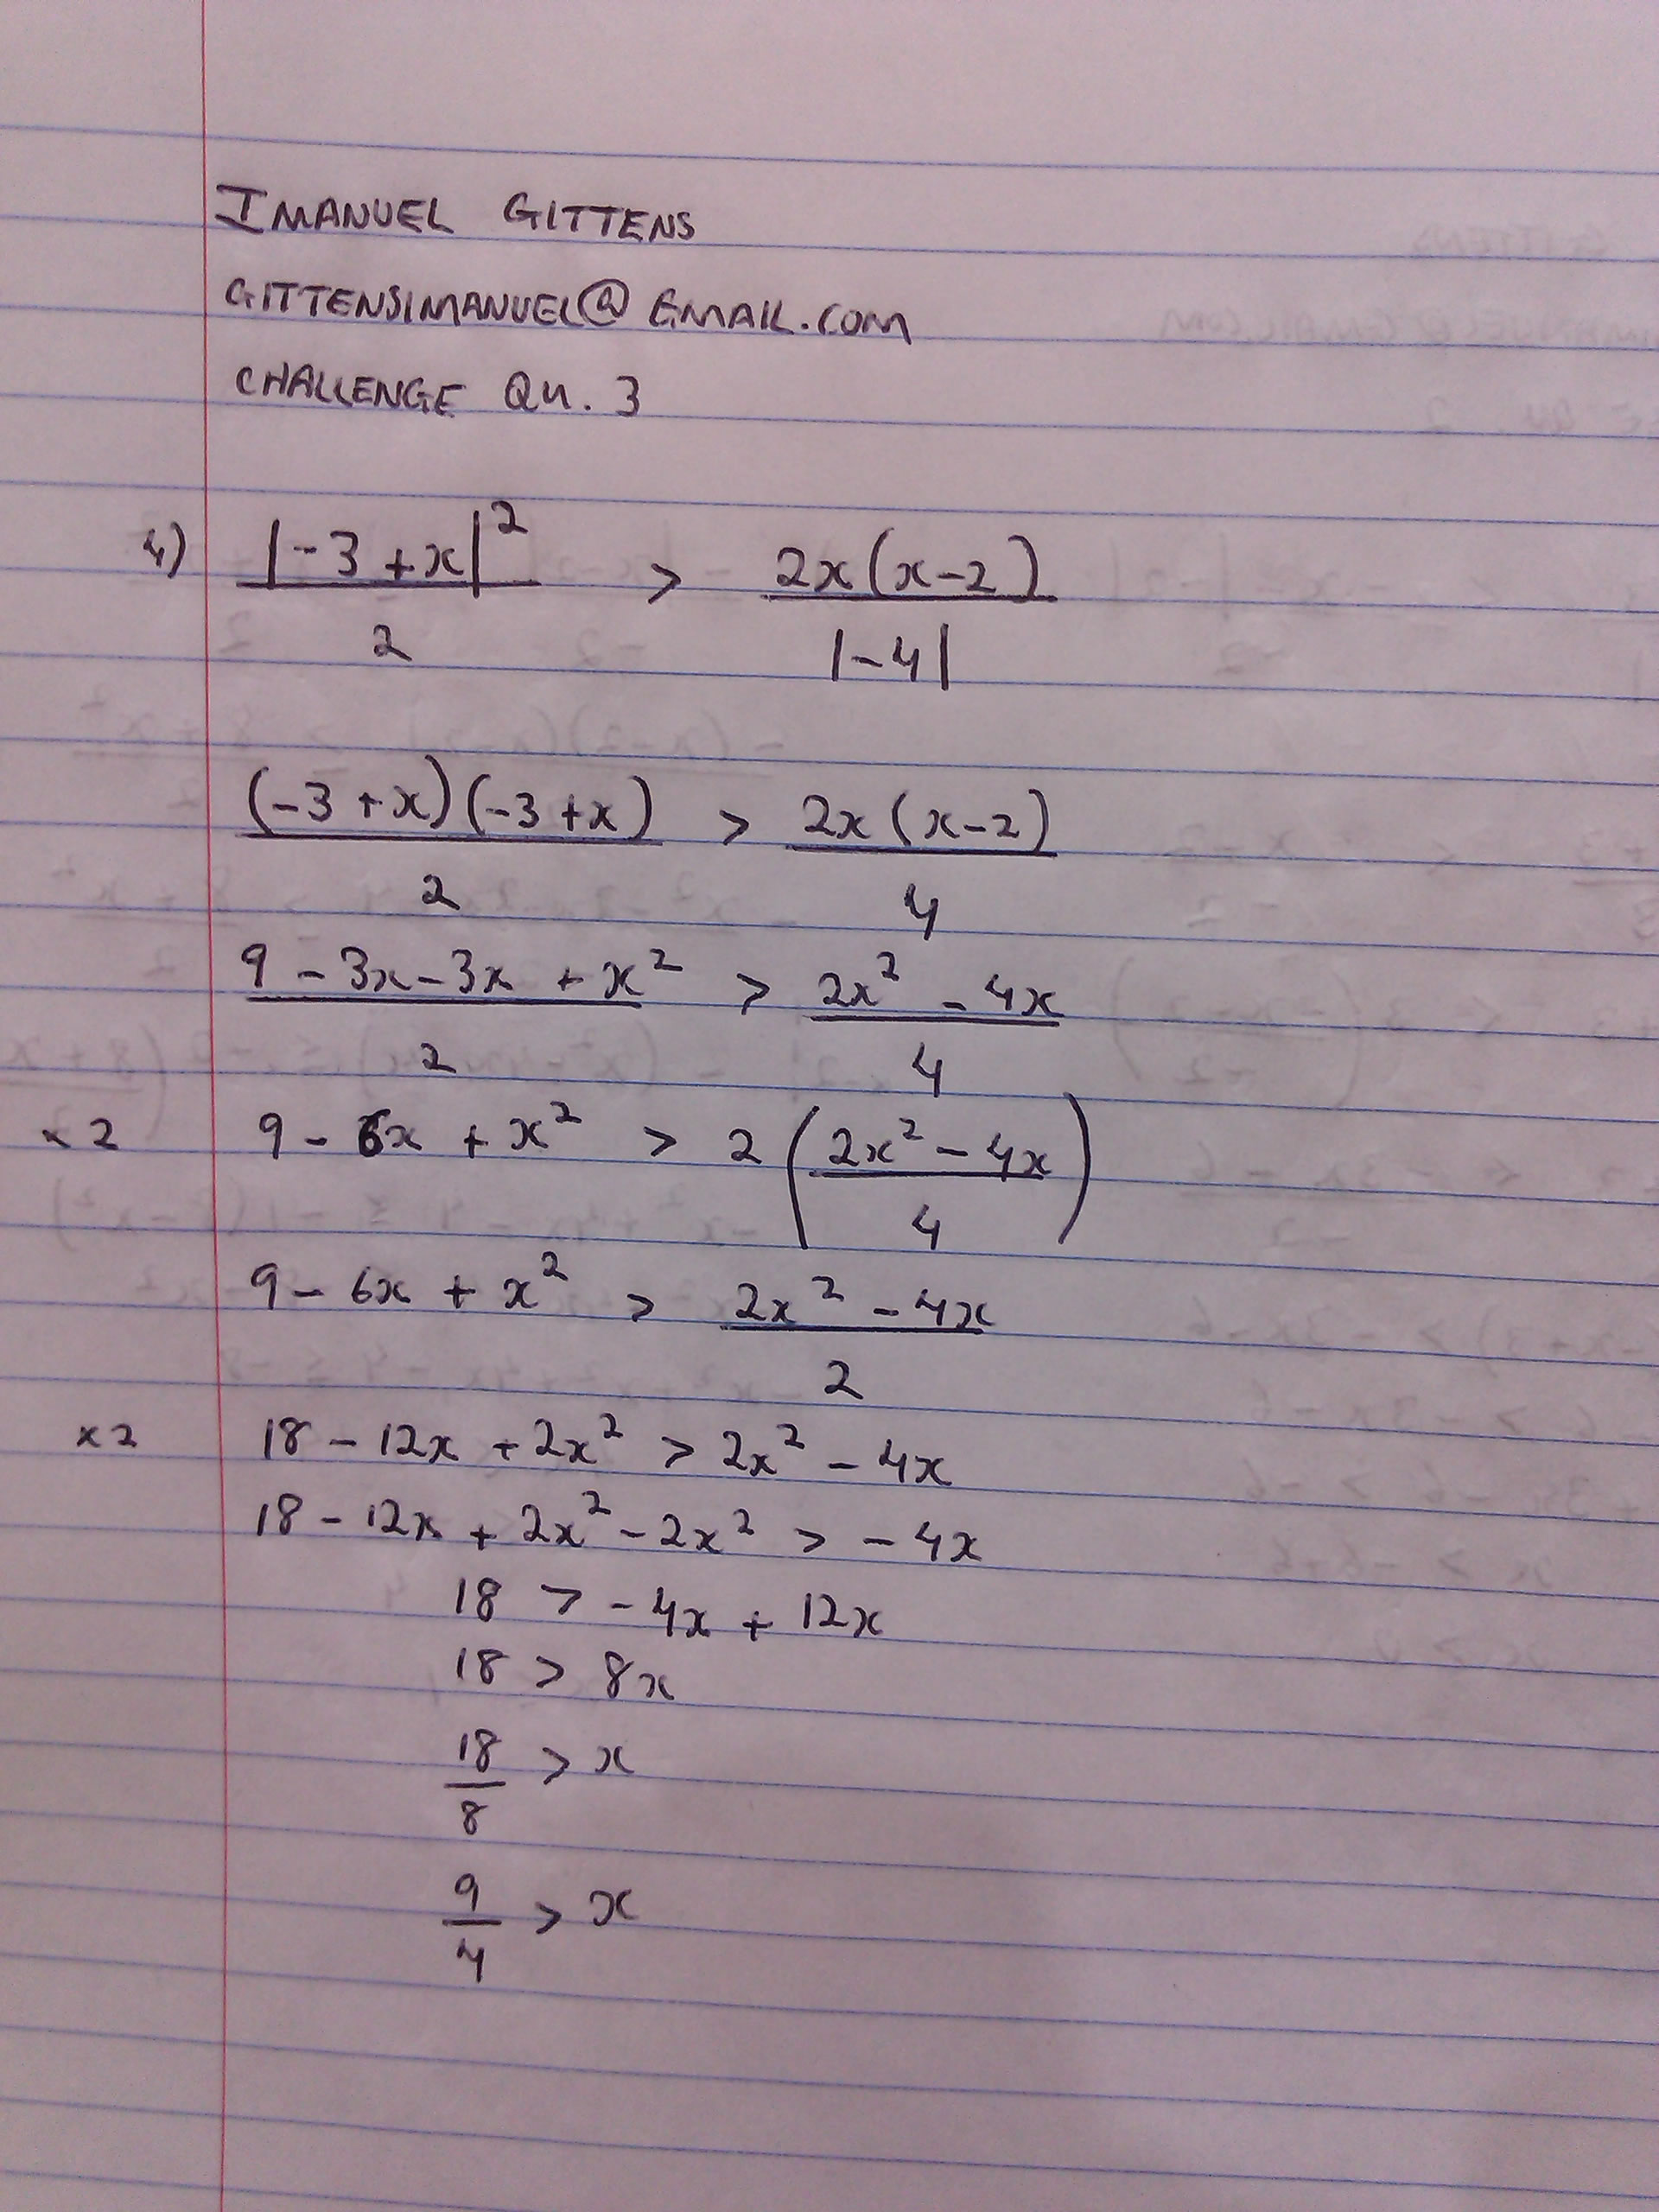 IMANUEL GITTENS
GITTENSIMANUEL@GMAIL.COM
CHALLENGE QU. 3
4) |-3+x|² / 2 > 2x(x-2) / |-4|
(-3+x)(-3+x) / 2 > 2x(x-2) / 4
9-3x-3x+x² / 2 > 2x²-4x / 4
×2 9-6x+x² > 2(2x²-4x / 4)
9-6x+x² > 2x²-4x / 2
×2 18-12x+2x² > 2x²-4x
18-12x+2x²-2x² > -4x
18 > -4x+12x
18 > 8x
18/8 > x
9/4 > x